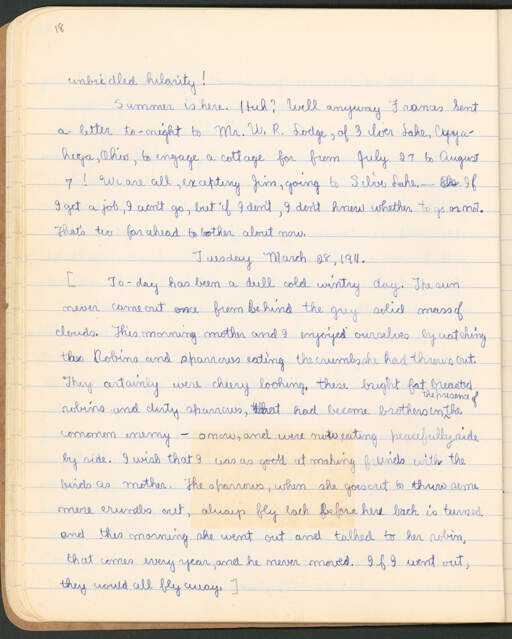 18
unbridled hilarity!
Summer is here. (Huh? Well anyway Frances sent
a letter to-night to Mr. W. R. Lodge, of Silver Lake, Cuya-
hoga, Ohio, to engage a cottage for from July 27 to August
7! We are all, excepting Jim, going to Silver Lake. — If
I get a job, I won't go, but if I don't, I don't know whether to go or not.
That's too far ahead to bother about now.
Tuesday March 28, 1911.
[ To-day has been a dull cold wintry day. The sun
never came out once from behind the grey solid mass of
clouds. This morning mother and I enjoyed ourselves by watching
the Robins and sparrows eating the crumbs she had thrown out.
They certainly were cheery looking, these bright fat breasted
robins and dirty sparrows, that had become brothers in the presence of the
common enemy – snow, and were now eating peacefully side
by side. I wish that I was as good at making friends with the
birds as mother. The sparrows, when she goes out to throw some
more crumbs out, always fly back before her back is turned
and this morning she went out and talked to her robin,
that comes every year, and he never moved. If I went out,
they would all fly away. ]